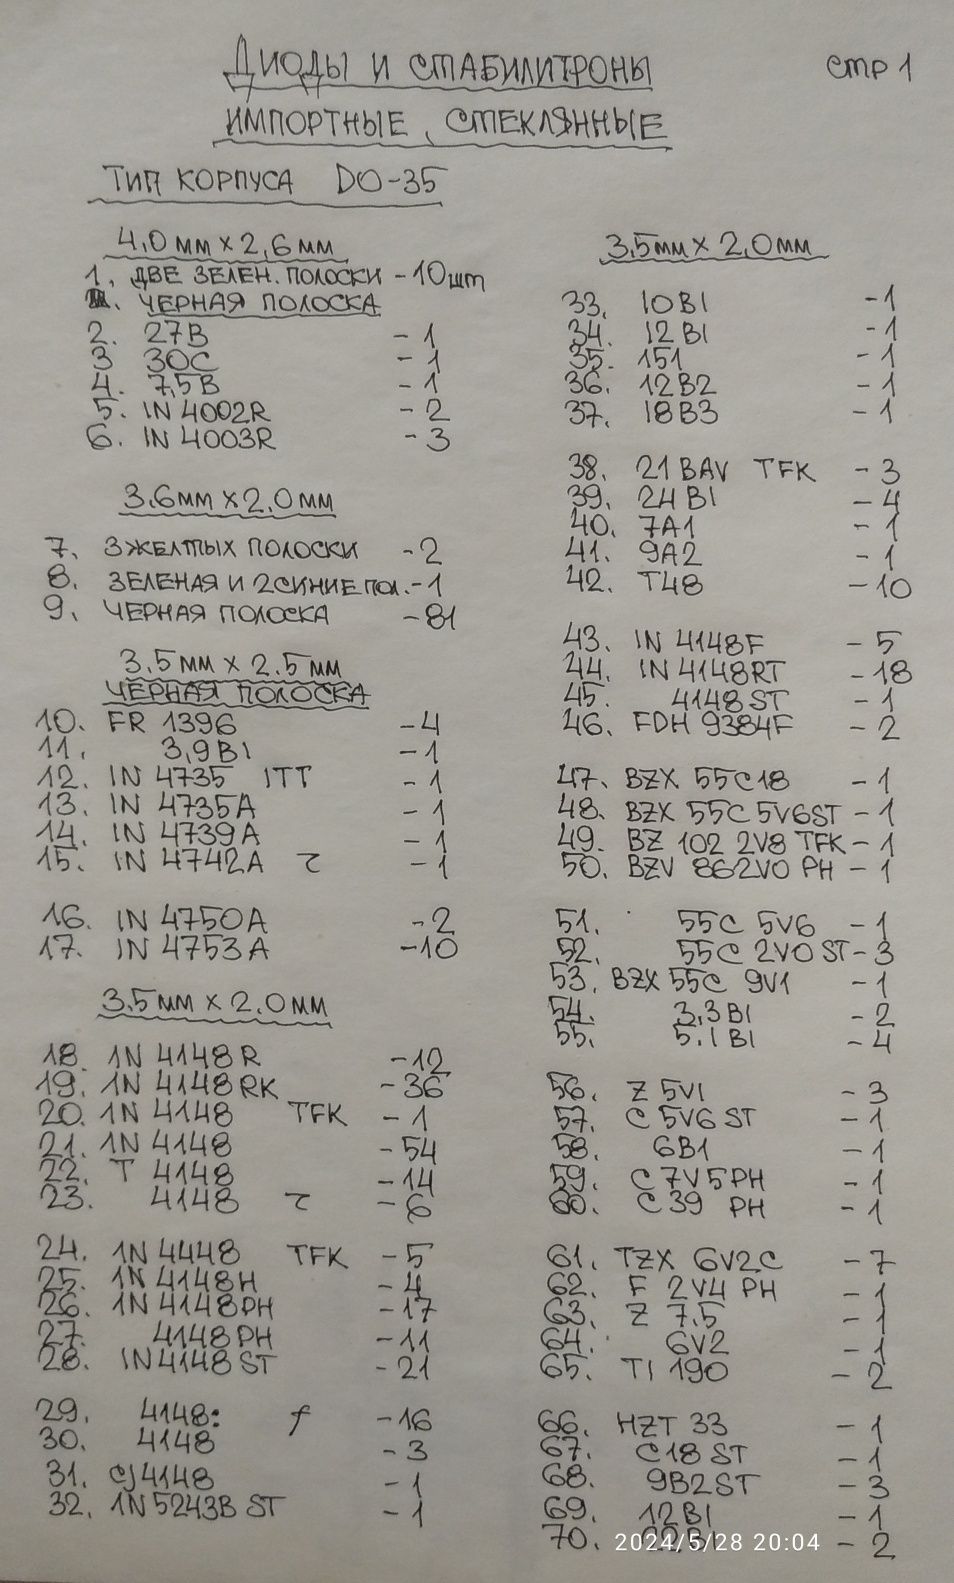 Диоды и стабилитроны
стр 1
импортные, стеклянные
Тип корпуса DO-35
4,0мм x 2,6мм
1. две зелен. полоски - 10шт
черная полоска
2. 27В - 1
3 30С - 1
4. 7,5В - 1
5. IN 4002R - 2
6. IN 4003R - 3
3.6мм x 2.0мм
7. 3 желтых полоски - 2
8. зеленая и 2 синие пол. - 1
9. черная полоска - 81
3.5мм x 2.5мм
черная полоска
10. FR 1396 - 4
11. 3,9B1 - 1
12. IN 4735 ITT - 1
13. IN 4735A - 1
14. IN 4739A - 1
15. IN 4742A τ - 1
16. IN 4750A - 2
17. IN 4753A - 10
3.5мм x 2.0мм
18. 1N 4148R - 12
19. 1N 4148RK - 36
20. 1N 4148 TFK - 1
21. 1N 4148 - 54
22. T 4148 - 14
23. 4148 τ - 6
24. 1N 4448 TFK - 5
25. 1N 4148H - 4
26. 1N 4148PH - 17
27. 4148PH - 11
28. IN4148ST - 21
29. 4148: f - 16
30. 4148 - 3
31. CJ4148 - 1
32. 1N5243B ST - 1
3.5мм x 2.0мм
33. 10B1 - 1
34. 12B1 - 1
35. 151 - 1
36. 12B2 - 1
37. 18B3 - 1
38. 21 BAV TFK - 3
39. 24B1 - 4
40. 7A1 - 1
41. 9A2 - 1
42. T48 - 10
43. IN 4148F - 5
44. IN 4148RT - 18
45. 4148ST - 1
46. FDH 9384F - 2
47. BZX 55C18 - 1
48. BZX 55C 5V6ST - 1
49. BZ 102 2V8 TFK - 1
50. BZV 862V0 PH - 1
51. 55C 5V6 - 1
52. 55C 2V0 ST - 3
53. BZX 55C 9V1 - 1
54. 3,3B1 - 2
55. 5.1B1 - 4
56. Z 5V1 - 3
57. C 5V6 ST - 1
58. 6B1 - 1
59. C 7V5PH - 1
60. C 39 PH - 1
61. TZX 6V2C - 7
62. F 2V4 PH - 1
63. Z 7.5 - 1
64. 6V2 - 1
65. TI 190 - 2
66. HZT 33 - 1
67. C18 ST - 1
68. 9B2ST - 3
69. 12B1 - 1
70. 22B1 - 2
2024/5/28 20:04